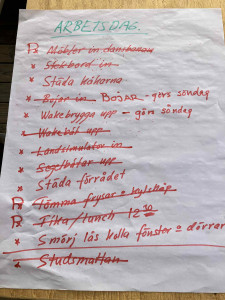 ARBETSDAG.
R Möbler in dansbanan
x Skekbord in
x Städa kåkarna
x Bojar in BOJAR - görs söndag
x Wakebrygga upp - görs söndag
x Wakebåt upp
x Landsimulator in
x Segelbåtar upp
x Städa förrådet
R Tömma frysar o kylskåp
R Fika/Lunch 12 30
x Smörj lås kolla fönster o dörrar
x Studsmattan